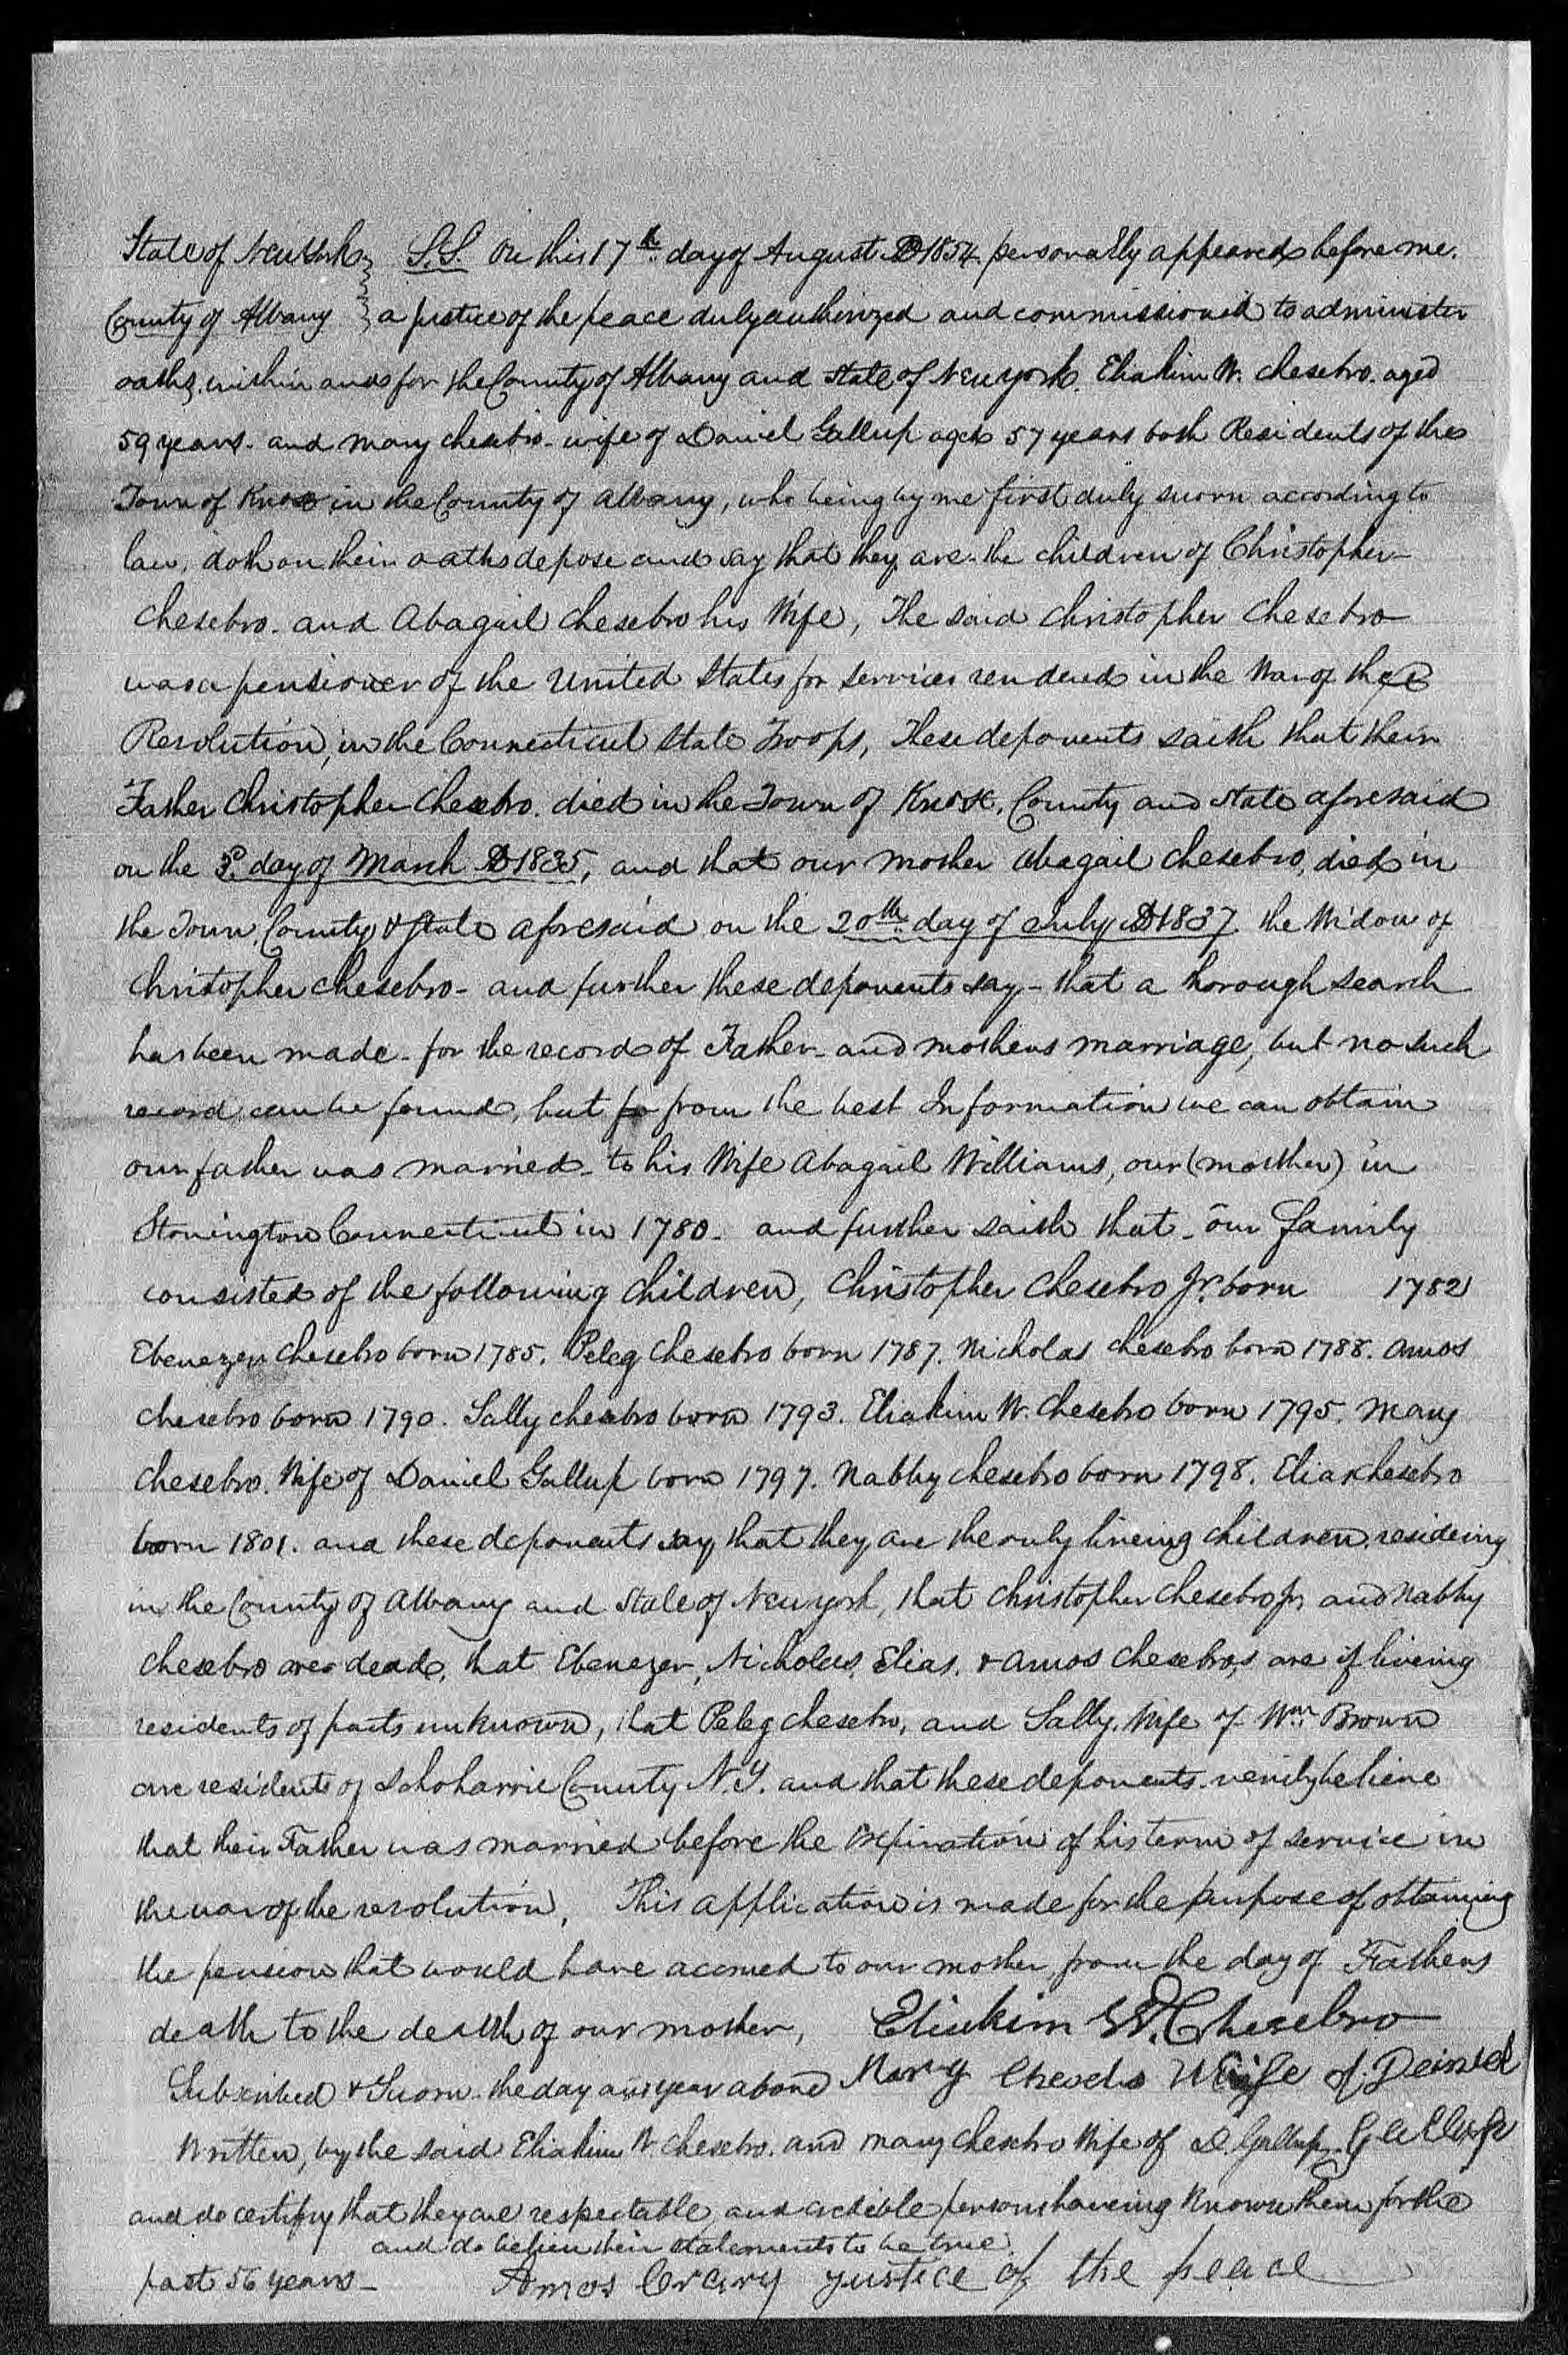 State of New York } S.S. On this 17th day of August AD 1854 personally appeared before me.
County of Albany } a justice of the peace duly authorized and commissioned to administer
oaths, within and for the County of Albany and State of New York. Eliakim W. Chesebro. aged
59 years. and Mary Chesebro. wife of Daniel Gallup aged 57 years both Residents of the
Town of Knox in the County of Albany, who being by me first duly sworn according to
law, doth on their oaths depose and say that they are the children of Christopher
Chesebro. and Abagail Chesebro his Wife, The said Christopher Chesebro
was a pensioner of the United States for services rendered in the War of the
Revolution, in the Connecticut State Troops, These deponents saith that their
Father Christopher Chesebro. died in the Town of Knox, County and State aforesaid
on the 3d day of March AD 1835, and that our mother Abagail Chesebro, died in
the Town County & State aforesaid on the 20th day of July AD 1837. the Widow of
Christopher Chesebro - and further these deponents say - that a thorough search
has been made - for the record of Father - and mothers marriage, but no such
record can be found, but from the best Information we can obtain
our father was married - to his Wife Abagail Williams, our (mother) in
Stonington Connecticut in 1780 - and further saith that - our family
consisted of the following children, Christopher Chesebro Jr. born 1782
Ebenezer Chesebro born 1785. Peleg Chesebro born 1787. Nicholas Chesebro born 1788. Amos
Chesebro born 1790. Sally Chesebro born 1793. Eliakim W. Chesebro born 1795. Mary
Chesebro. Wife of Daniel Gallup born 1797. Nabby Chesebro born 1798. Elias Chesebro
born 1801. and these deponents say that they are the only liveing children resideing
in the County of Albany and State of New york, that Christopher Chesebro Jr, and Nabby
Chesebro are dead, that Ebenezer, Nicholas, Elias, & Amos Chesebro, are if liveing
residents of parts unknown, that Peleg Chesebro, and Sally, Wife of Wm Brown
are residents of Schoharrie County N.Y. and that these deponents verily believe
that their Father was married before the expiration of his term of service in
the war of the revolution, This application is made for the purpose of obtaining
the pension that would have accrued to our mother, from the day of Fathers
death to the death of our mother, Eliakim W. Chesebro
Subscribed & Sworn - the day and year above Mary Chesebro Wife of Daniel
Written, by the said Eliakim W. Chesebro. and Mary Chesebro Wife of D. Gallup. Gallup
and do certify that they are respectable, and credible persons haveing known them for the
and do believe their statements to be true.
past 56 years - Amos Crary justice of the peace